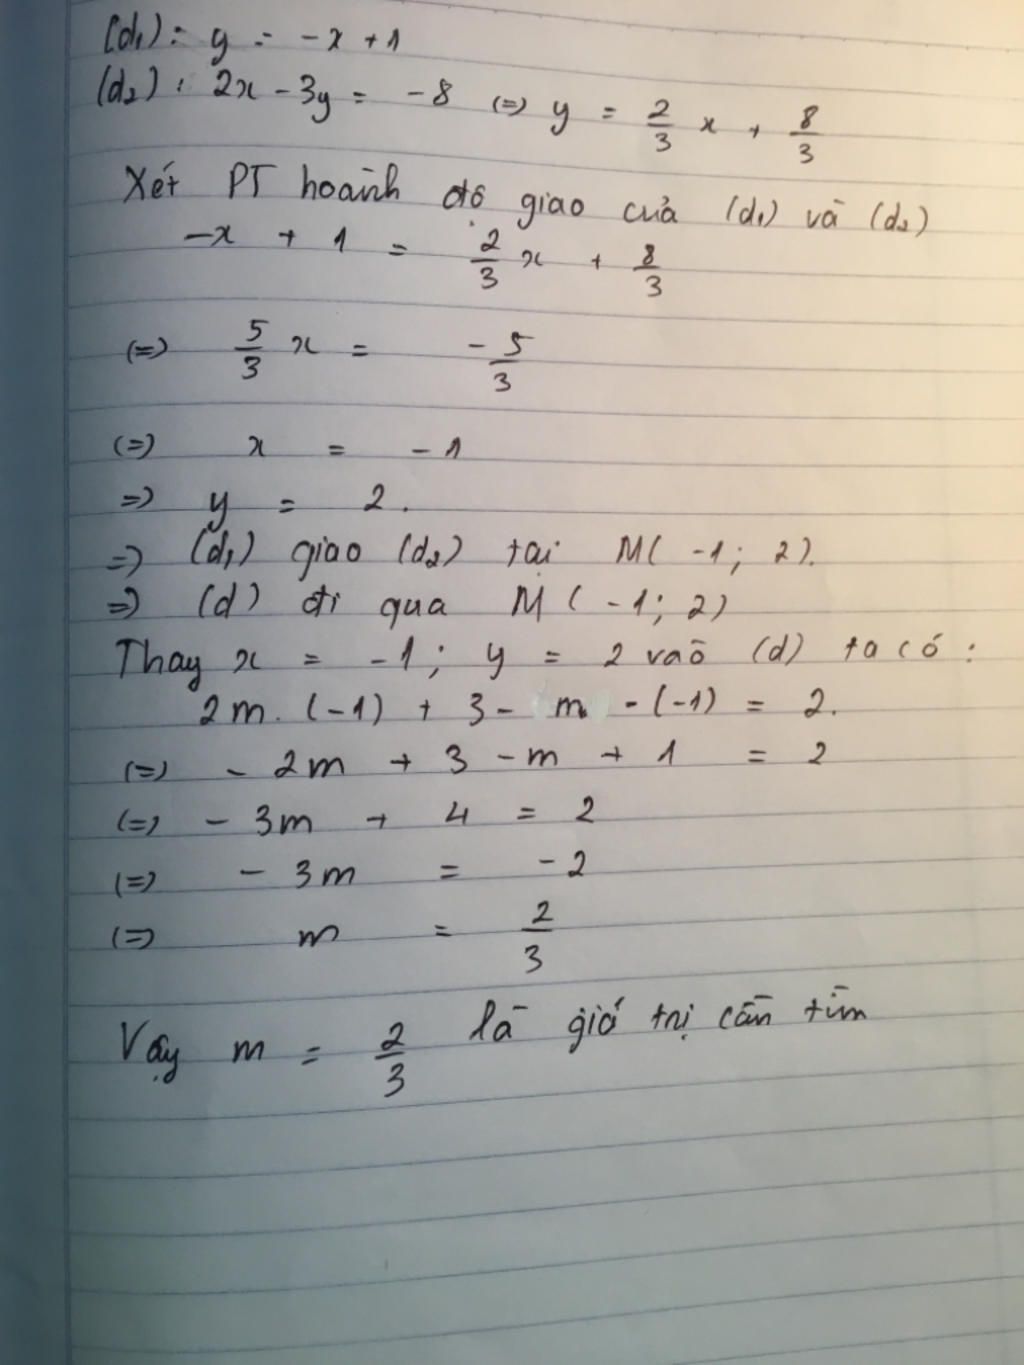 (d₁): y = -x + 1
(d₂): 2x - 3y = -8 (=) y = 2/3 x + 8/3
Xét PT hoành độ giao của (d₁) và (d₂)
-x + 1 = 2/3 x + 8/3
(=) 5/3 x = -5/3
(=) x = -1
=) y = 2.
=) (d₁) giao (d₂) tại M(-1; 2).
=) (d) đi qua M(-1; 2)
Thay x = -1; y = 2 vào (d) ta có:
2m. (-1) + 3 - m - (-1) = 2.
(=) -2m + 3 - m + 1 = 2
(=) -3m + 4 = 2
(=) -3m = -2
(=) m = 2/3
Vậy m = 2/3 là giá trị cần tìm